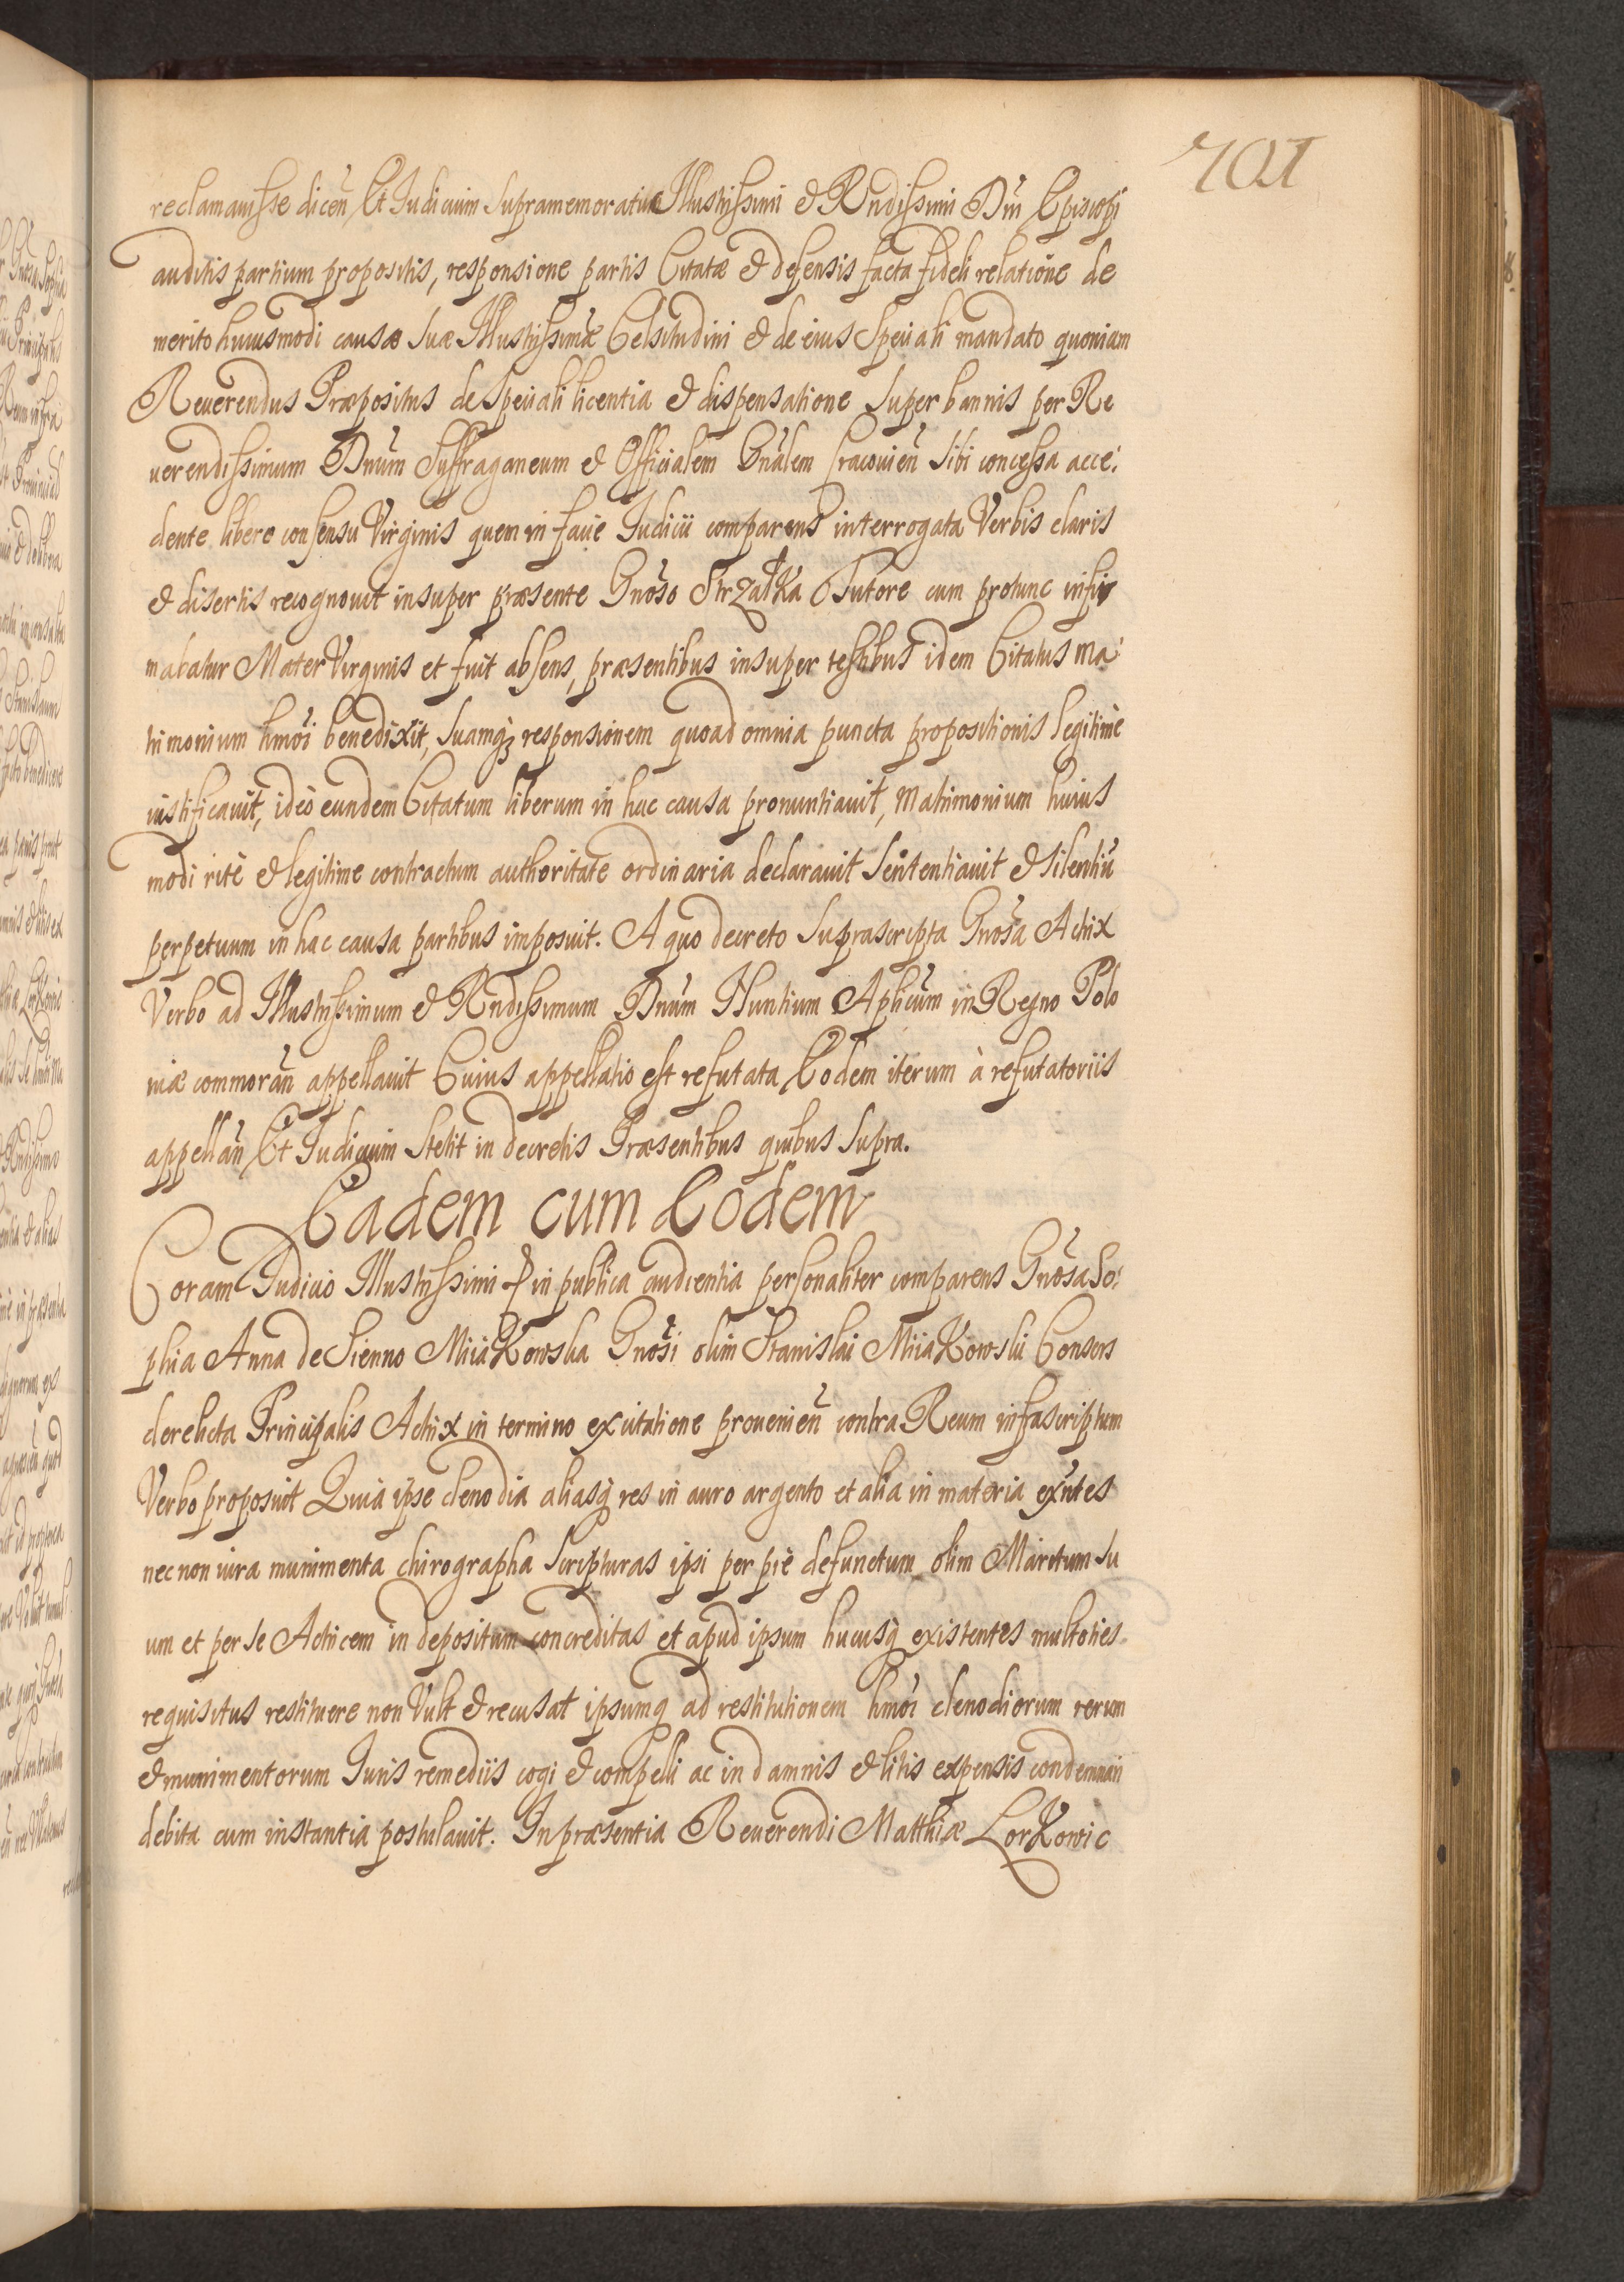 701
reclamavisse dicen̄ Et Iudicium supramemoratum Illustrissimi & Rndissimi Dni Episcopi
auditis partium propositis, responsione partis Citatæ & defensis facta fideli relatione de
merito huiusmodi causæ suæ Illustrissimæ Celsitudini & de eius speciali mandato quoniam
Reuerendus Præpositus de speciali licentia & dispensatione super bannis per Re
uerendissimum Dnum Suffraganeum & Officialem Gnalem Cracouien̄ sibi concessa acce:
dente libero consensu Virginis quem in facie Iudicii comparens interrogata Verbis claris
& disertis recognouit insuper præsente Gnoso Strzałka Tutore cum protunc infir
mabatur Mater Virginis et fuit absens, præsentibus insuper testibus idem Citatus ma:
trimonium hmoi benedixit, suamq; responsionem quoad omnia puncta propositionis legitime
iustificauit, ideo eundem Citatum liberum in hac causa pronuntiauit, Matrimonium huius
modi ritè & legitime contractum authoritate ordinaria declarauit sententiauit & silentiū
perpetuum in hac causa partibus imposuit. A quo decreto suprascripta Gnosa Actrix
Verbo ad Illustrissimum & Rndissimum Dnum Nuntium Aplicum in Regno Polo
niæ commoran̄ appellauit Cuius appellatio est refutata Eodem iterum à refutatoriis
appellan̄ Et Iudicium stetit in decretis Præsentibus quibus supra.
Eadem cum Eodem
Coram Iudicio Illustrissimi & in publica audientia personaliter comparens Gnosa So:
phia Anna de Sienno Miiakowska Gnosi olim Stanislai Miiakowski Consors
derelicta Principalis Actrix in termino ex citatione prouenien̄ contra Reum infrascriptum
Verbo proposuit Quia ipse clenodia aliasq; res in auro argento et alia in materia exntes
nec non iura munimenta chirographa scripturas ipsi per piè defunctum olim Maritum su
um et per se Actricem in depositum concreditas et apud ipsum hucusq; existentes multoties
requisitus restituere non Vult & recusat ipsumq; ad restitutionem hmoi clenodiorum rerum
& munimentorum Iuris remediis cogi & compelli ac in damnis & litis expensis condemnari
debita cum instantia postulauit. In præsentia Reuerendi Matthiæ Lorkowic